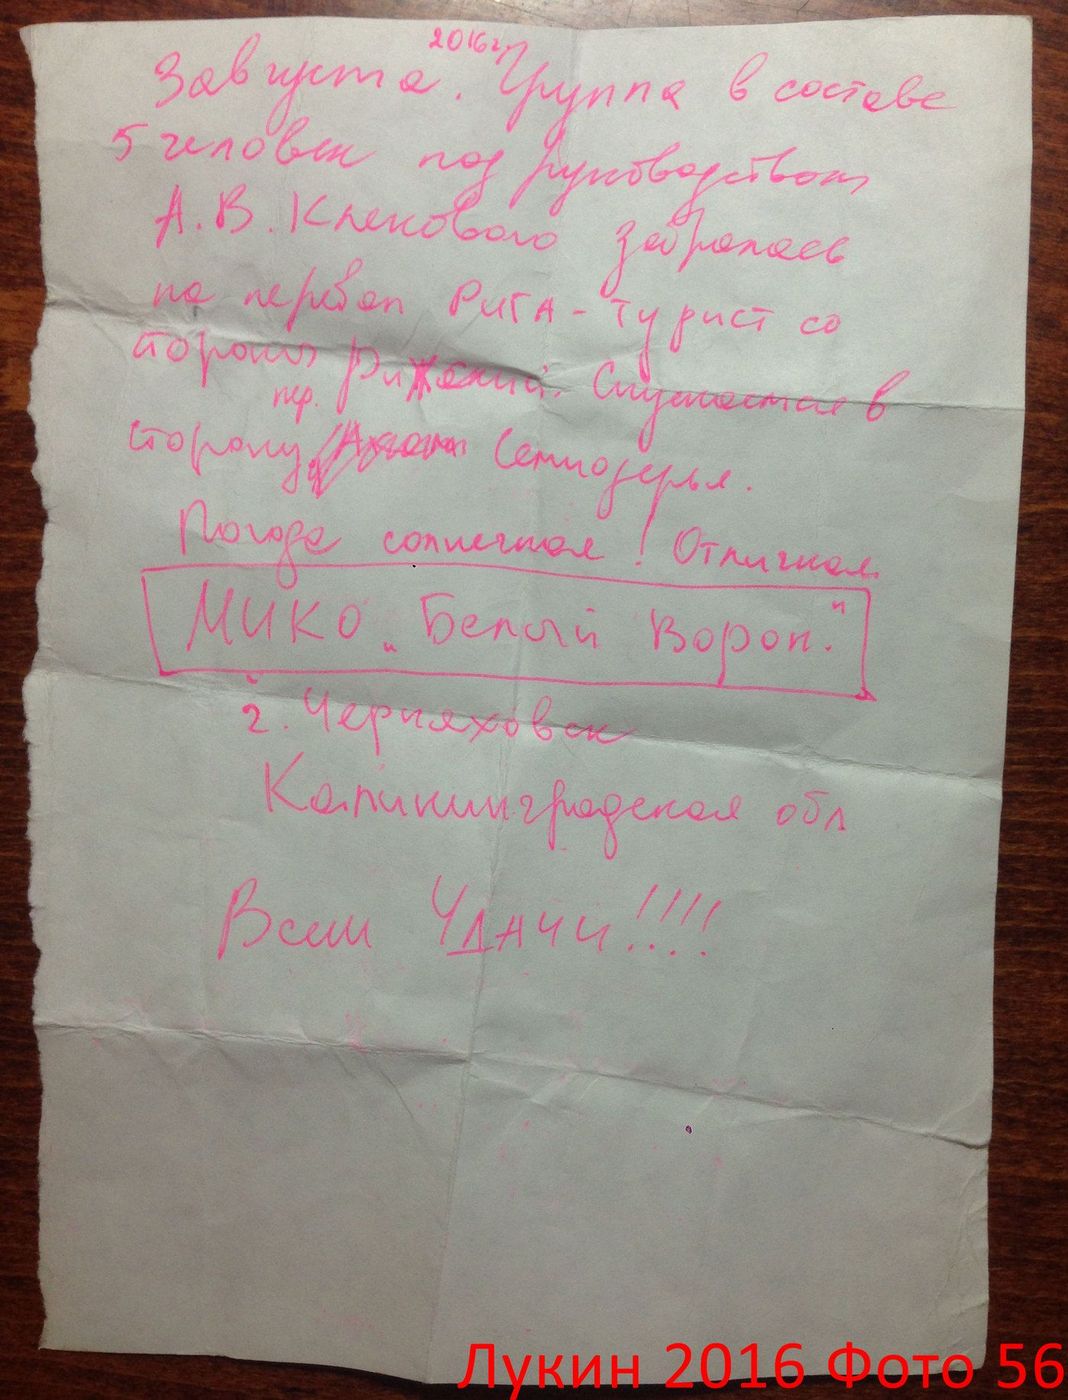 3 августа. 2016г. Группа в составе
5 человек под руководством
А.В. Клекового забралась
на перевал РИГА-Турист со
стороны пер. Рижский. Спускаемся в
сторону Семиозерья.
Погода солнечная! Отличная
МИКО „Белый Ворон."
г. Черняховск
Калининградская обл
Всем Удачи!!!!
Лукин 2016 Фото 56